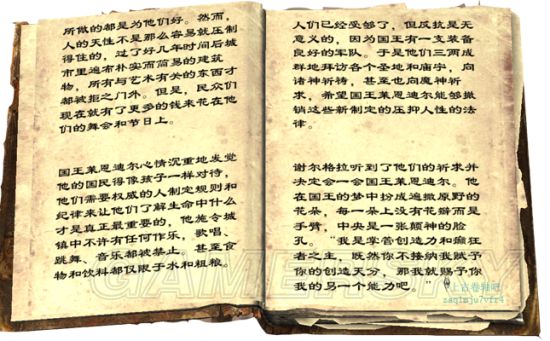 所做的都是为他们好。然而，
人的天性不是那么容易就压制
得住的，过了好几年时间后城
市里遍布朴实而简易的建筑
物，所有与艺术有关的东西才
都被拒之门外。但是，民众们
现在就有了更多的钱来花在他
们的舞会和节日上。
国王莱恩迪尔心情沉重地发觉
他的国民得像孩子一样对待，
他们需要权威的人制定规则和
纪律来让他们了解生命中什么
才是真正最重要的，他施令城
镇中不许有任何作乐，歌唱、
跳舞、音乐都被禁止。甚至食
物和饮料都仅限于水和粗粮。
人们已经受够了，但反抗是无
意义的，因为国王有一支装备
良好的军队。于是他们三两成
群地拜访各个圣地和庙宇，向
诸神祈祷，甚至也向魔神祈
求，希望国王莱恩迪尔能够撤
销这些新制定的压抑人性的法
律。
谢尔格拉听到了他们的祈求并
决定会一会国王莱恩迪尔。他
在国王的梦中扮成遍撒原野的
花朵，每一朵上没有花瓣而是
手臂，中央是一张颠神的脸
孔。“我是掌管创造力和癫狂
者之主，既然你不接纳我赋予
你的创造天分，那我就赐予你
我的另一个能力吧。”
GAMERSKY
@上古卷轴吧
zaq1mju7vfr4